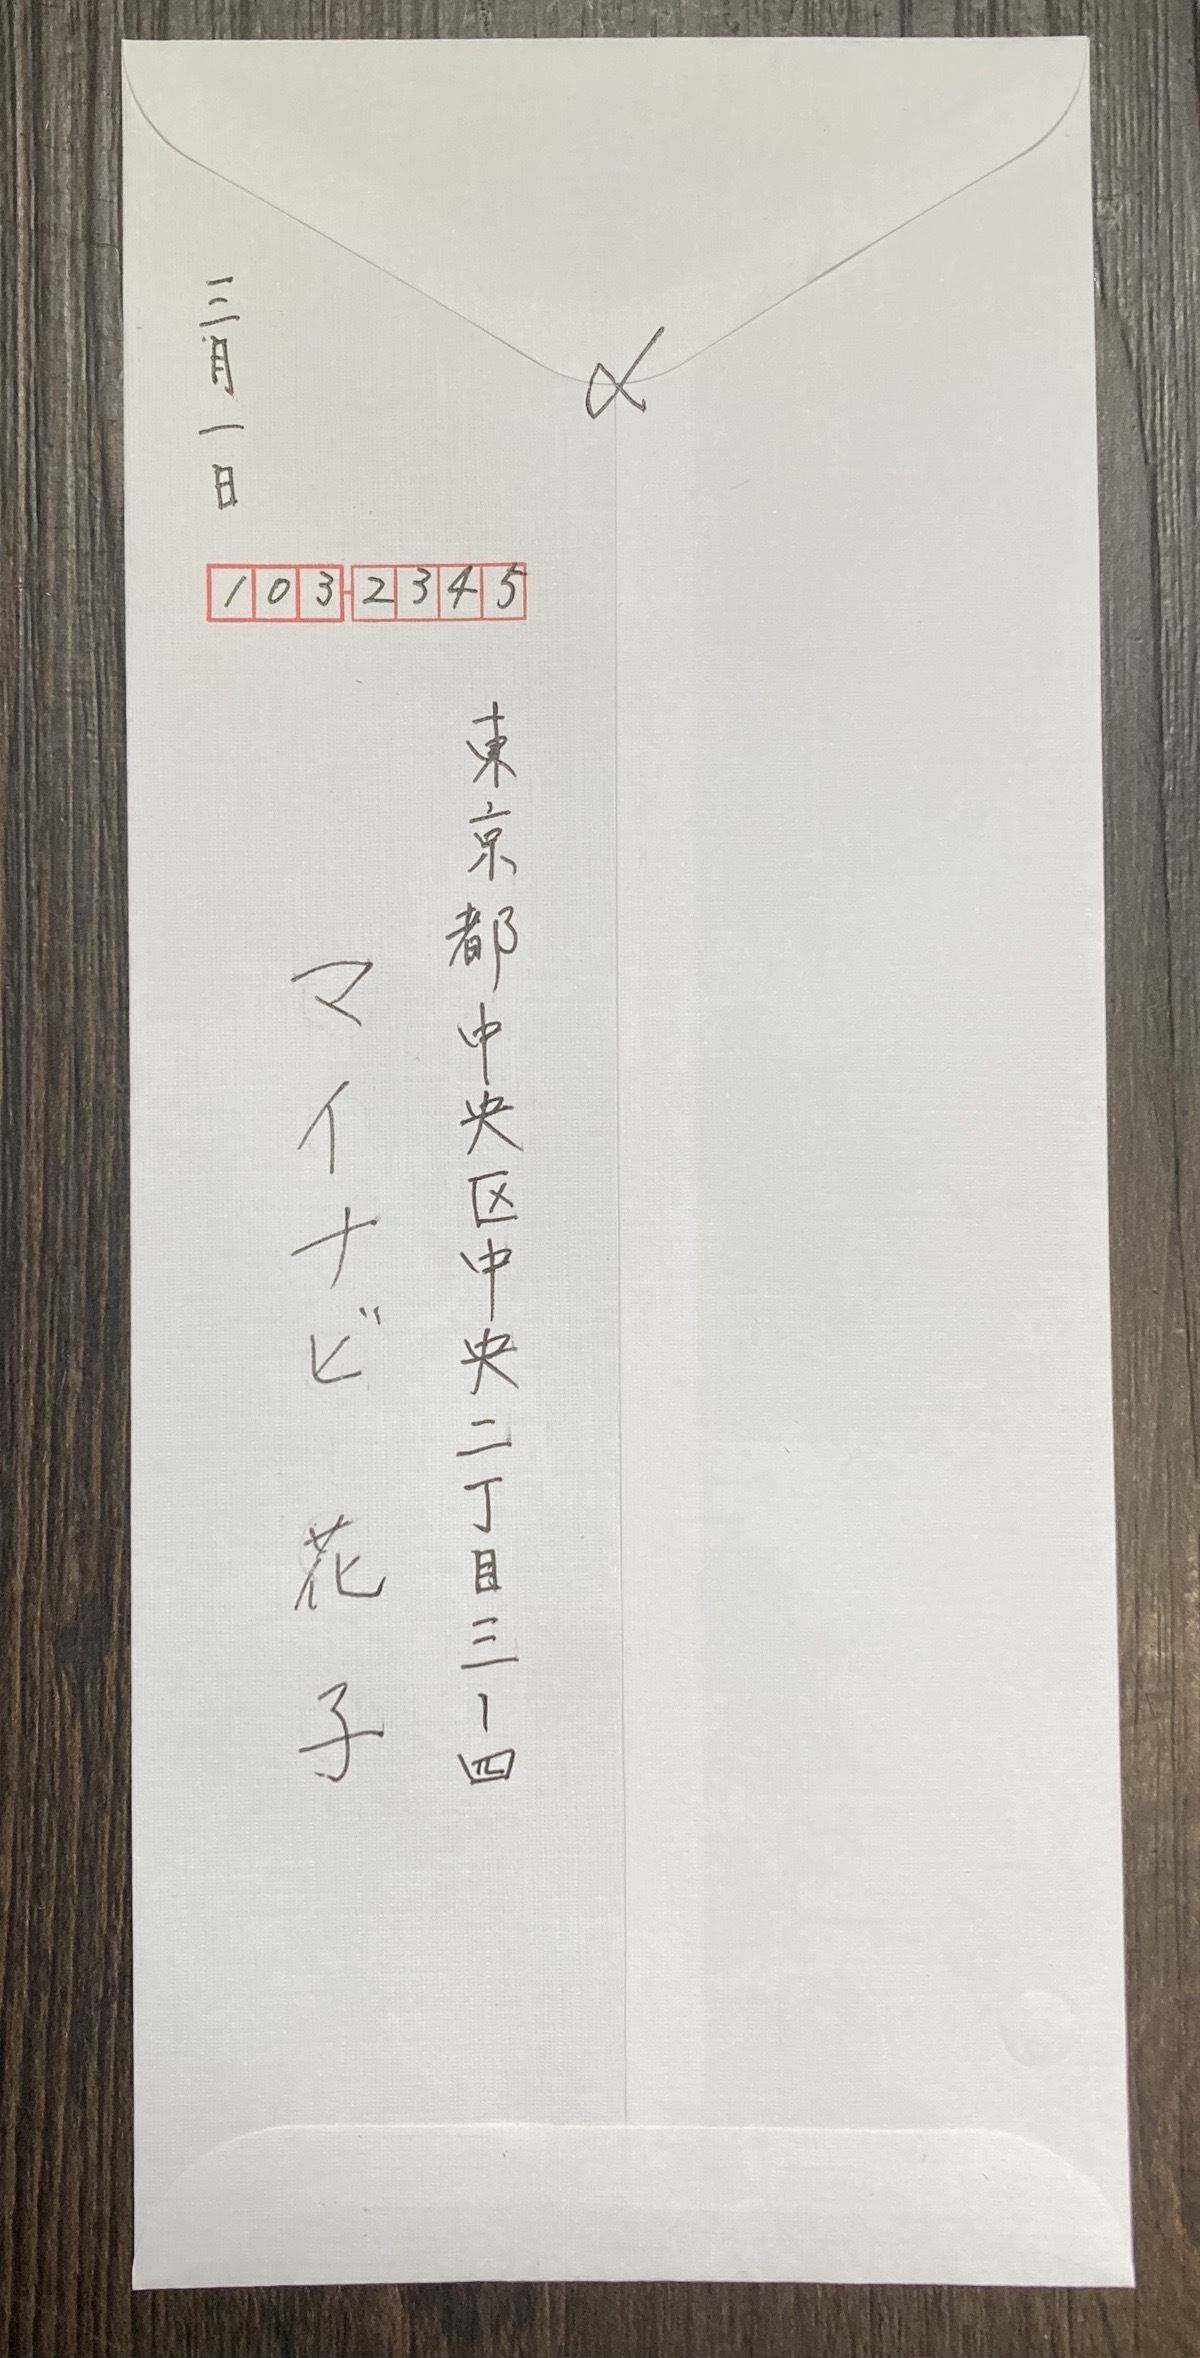 〆
三月一日
103-2345
東京都中央区中央二丁目三ー四
マイナビ 花子